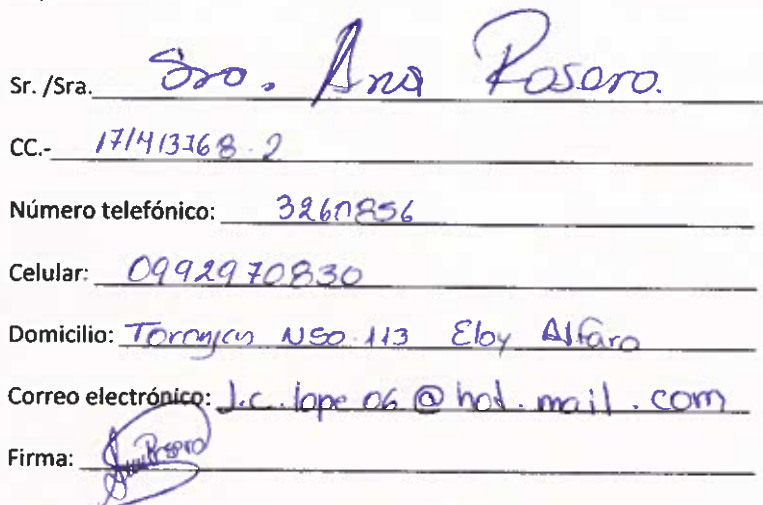 Sr. /Sra. Sra. Ana Rosero.
CC.- 171413768-2
Número telefónico: 3260856
Celular: 0992970830
Domicilio: Toronjas N50-113 Eloy Alfaro
Correo electrónico: J.c.lope 06 @ hot.mail.com
Firma: Ana Rosero